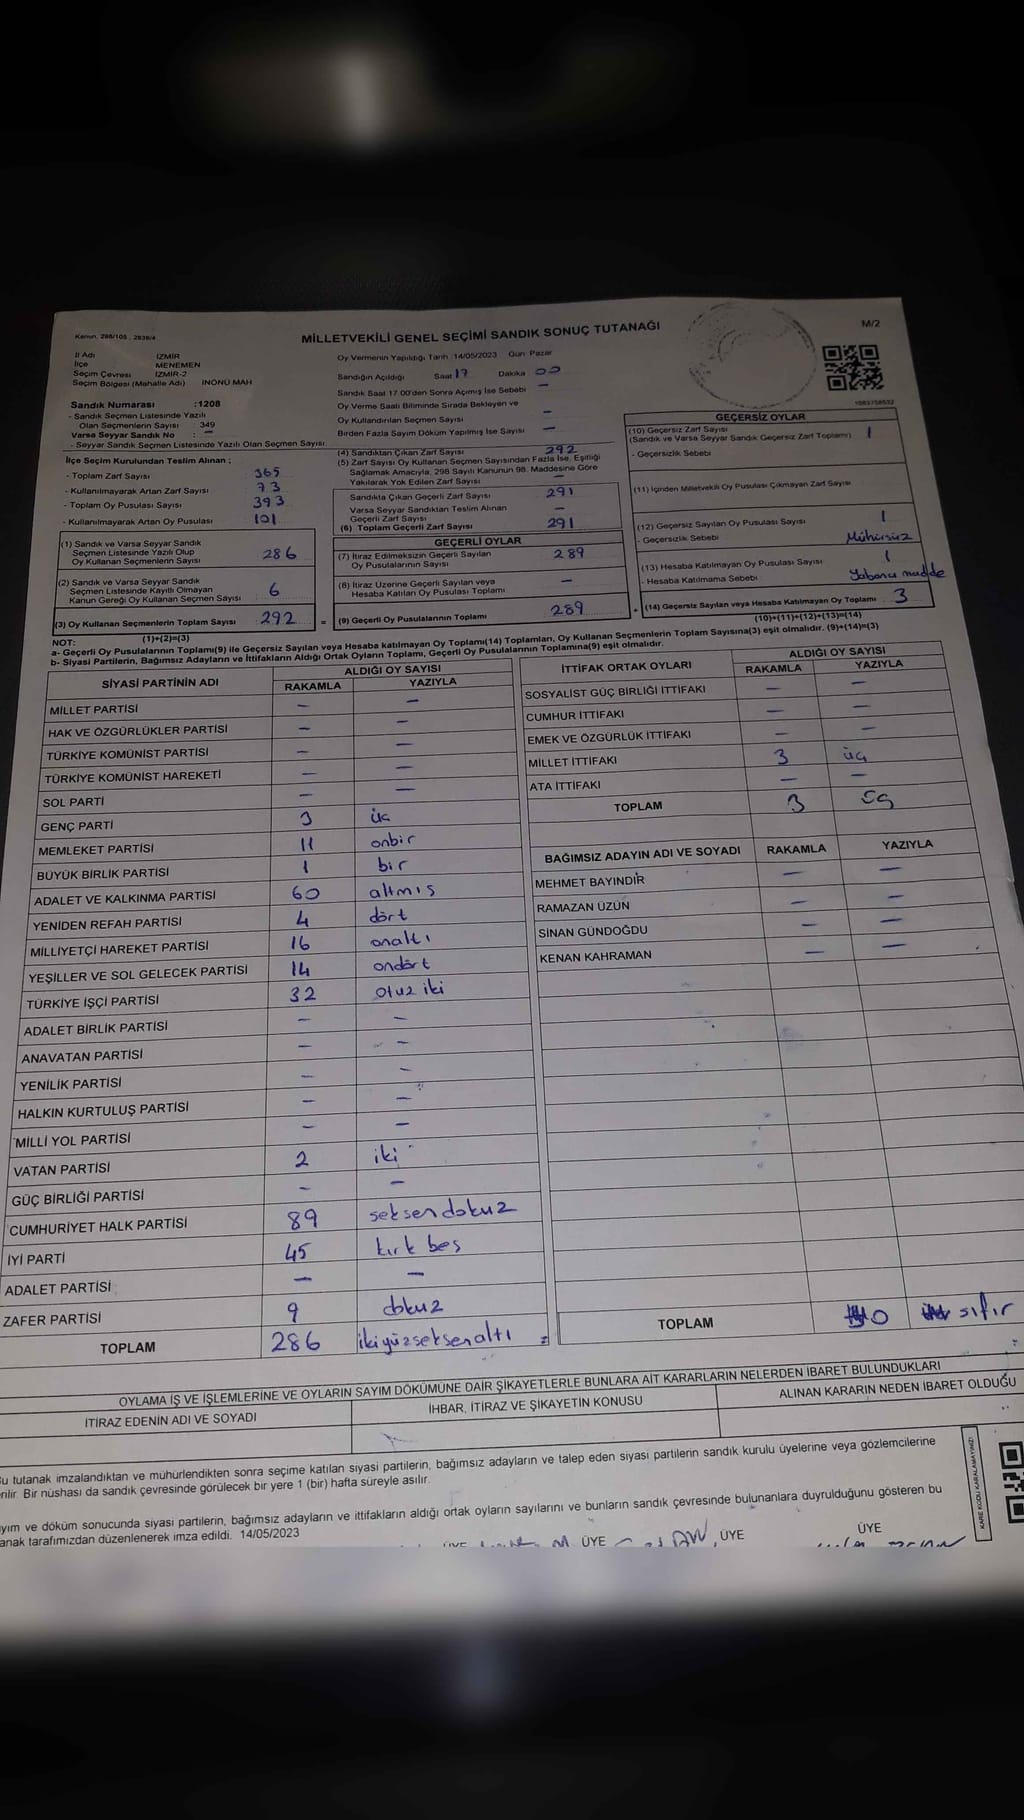 Kanun, 298/105 , 2839/4
MİLLETVEKİLİ GENEL SEÇİMİ SANDIK SONUÇ TUTANAĞI
M/2
İl Adı İZMİR
İlçe MENEMEN
Seçim Çevresi İZMİR-2
Seçim Bölgesi (Mahalle Adı) İNÖNÜ MAH
Sandık Numarası :1208
- Sandık Seçmen Listesinde Yazılı
Olan Seçmenlerin Sayısı : 349
Varsa Seyyar Sandık No : –
- Seyyar Sandık Seçmen Listesinde Yazılı Olan Seçmen Sayısı
İlçe Seçim Kurulundan Teslim Alınan ;
- Toplam Zarf Sayısı 365
- Kullanılmayarak Artan Zarf Sayısı 73
- Toplam Oy Pusulası Sayısı 393
- Kullanılmayarak Artan Oy Pusulası 101
(1) Sandık ve Varsa Seyyar Sandık
Seçmen Listesinde Yazılı Olup
Oy Kullanan Seçmenlerin Sayısı 286
(2) Sandık ve Varsa Seyyar Sandık
Seçmen Listesinde Kayıtlı Olmayan
Kanun Gereği Oy Kullanan Seçmen Sayısı 6
(3) Oy Kullanan Seçmenlerin Toplam Sayısı 292 =
Oy Vermenin Yapıldığı Tarih :14/05/2023 Gün: Pazar
Sandığın Açıldığı Saat 17 Dakika 00
Sandık Saat 17.00'den Sonra Açılmış İse Sebebi –
Oy Verme Saati Bitiminde Sırada Bekleyen ve
Oy Kullandırılan Seçmen Sayısı –
Birden Fazla Sayım Döküm Yapılmış İse Sayısı –
(4) Sandıktan Çıkan Zarf Sayısı 292
(5) Zarf Sayısı Oy Kullanan Seçmen Sayısından Fazla İse, Eşitliği
Sağlamak Amacıyla, 298 Sayılı Kanunun 98. Maddesine Göre
Yakılarak Yok Edilen Zarf Sayısı –
Sandıkta Çıkan Geçerli Zarf Sayısı 291
Varsa Seyyar Sandıktan Teslim Alınan
Geçerli Zarf Sayısı –
(6) Toplam Geçerli Zarf Sayısı 291
GEÇERLİ OYLAR
(7) İtiraz Edilmeksizin Geçerli Sayılan
Oy Pusulalarının Sayısı 289
(8) İtiraz Üzerine Geçerli Sayılan veya
Hesaba Katılan Oy Pusulası Toplamı –
(9) Geçerli Oy Pusulalarının Toplamı 289 +
1083758532
GEÇERSİZ OYLAR
(10) Geçersiz Zarf Sayısı 1
(Sandık ve Varsa Seyyar Sandık Geçersiz Zarf Toplamı)
- Geçersizlik Sebebi
(11) İçinden Milletvekili Oy Pusulası Çıkmayan Zarf Sayısı
(12) Geçersiz Sayılan Oy Pusulası Sayısı 1
- Geçersizlik Sebebi Mühürsüz
(13) Hesaba Katılmayan Oy Pusulası Sayısı 1
- Hesaba Katılmama Sebebi Yabancı madde
(14) Geçersiz Sayılan veya Hesaba Katılmayan Oy Toplamı 3
NOT: (1)+(2)=(3) (10)+(11)+(12)+(13)=(14)
a- Geçerli Oy Pusulalarının Toplamı(9) ile Geçersiz Sayılan veya Hesaba katılmayan Oy Toplamı(14) Toplamları, Oy Kullanan Seçmenlerin Toplam Sayısına(3) eşit olmalıdır. (9)+(14)=(3)
b- Siyasi Partilerin, Bağımsız Adayların ve İttifakların Aldığı Ortak Oyların Toplamı, Geçerli Oy Pusulalarının Toplamına(9) eşit olmalıdır.
SİYASİ PARTİNİN ADI ALDIĞI OY SAYISI
RAKAMLA YAZIYLA
MİLLET PARTİSİ – –
HAK VE ÖZGÜRLÜKLER PARTİSİ – –
TÜRKİYE KOMÜNİST PARTİSİ – –
TÜRKİYE KOMÜNİST HAREKETİ – –
SOL PARTİ – –
GENÇ PARTİ 3 üç
MEMLEKET PARTİSİ 11 onbir
BÜYÜK BİRLİK PARTİSİ 1 bir
ADALET VE KALKINMA PARTİSİ 60 altmış
YENİDEN REFAH PARTİSİ 4 dört
MİLLİYETÇİ HAREKET PARTİSİ 16 onaltı
YEŞİLLER VE SOL GELECEK PARTİSİ 14 ondört
TÜRKİYE İŞÇİ PARTİSİ 32 otuz iki
ADALET BİRLİK PARTİSİ – –
ANAVATAN PARTİSİ – –
YENİLİK PARTİSİ – –
HALKIN KURTULUŞ PARTİSİ – –
MİLLİ YOL PARTİSİ – –
VATAN PARTİSİ 2 iki
GÜÇ BİRLİĞİ PARTİSİ – –
CUMHURİYET HALK PARTİSİ 89 seksendokuz
İYİ PARTİ 45 kırk beş
ADALET PARTİSİ – –
ZAFER PARTİSİ 9 dokuz
TOPLAM 286 ikiyüzseksenaltı
İTTİFAK ORTAK OYLARI ALDIĞI OY SAYISI
RAKAMLA YAZIYLA
SOSYALİST GÜÇ BİRLİĞİ İTTİFAKI – –
CUMHUR İTTİFAKI – –
EMEK VE ÖZGÜRLÜK İTTİFAKI – –
MİLLET İTTİFAKI 3 üç
ATA İTTİFAKI – –
TOPLAM 3 üç
BAĞIMSIZ ADAYIN ADI VE SOYADI RAKAMLA YAZIYLA
MEHMET BAYINDIR – –
RAMAZAN UZUN – –
SİNAN GÜNDOĞDU – –
KENAN KAHRAMAN – –
TOPLAM 0 sıfır
OYLAMA İŞ VE İŞLEMLERİNE VE OYLARIN SAYIM DÖKÜMÜNE DAİR ŞİKAYETLERLE BUNLARA AİT KARARLARIN NELERDEN İBARET BULUNDUKLARI
İTİRAZ EDENİN ADI VE SOYADI İHBAR, İTİRAZ VE ŞİKAYETİN KONUSU ALINAN KARARIN NEDEN İBARET OLDUĞU
tutanak imzalandıktan ve mühürlendikten sonra seçime katılan siyasi partilerin, bağımsız adayların ve talep eden siyasi partilerin sandık kurulu üyelerine veya gözlemcilerine
Bir nüshası da sandık çevresinde görülecek bir yere 1 (bir) hafta süreyle asılır.
ve döküm sonucunda siyasi partilerin, bağımsız adayların ve ittifakların aldığı ortak oyların sayılarını ve bunların sandık çevresinde bulunanlara duyrulduğunu gösteren bu
tarafımızdan düzenlenerek imza edildi. 14/05/2023
ÜYE ÜYE ÜYE ÜYE
KARE KODU KARALAMAYINIZ!